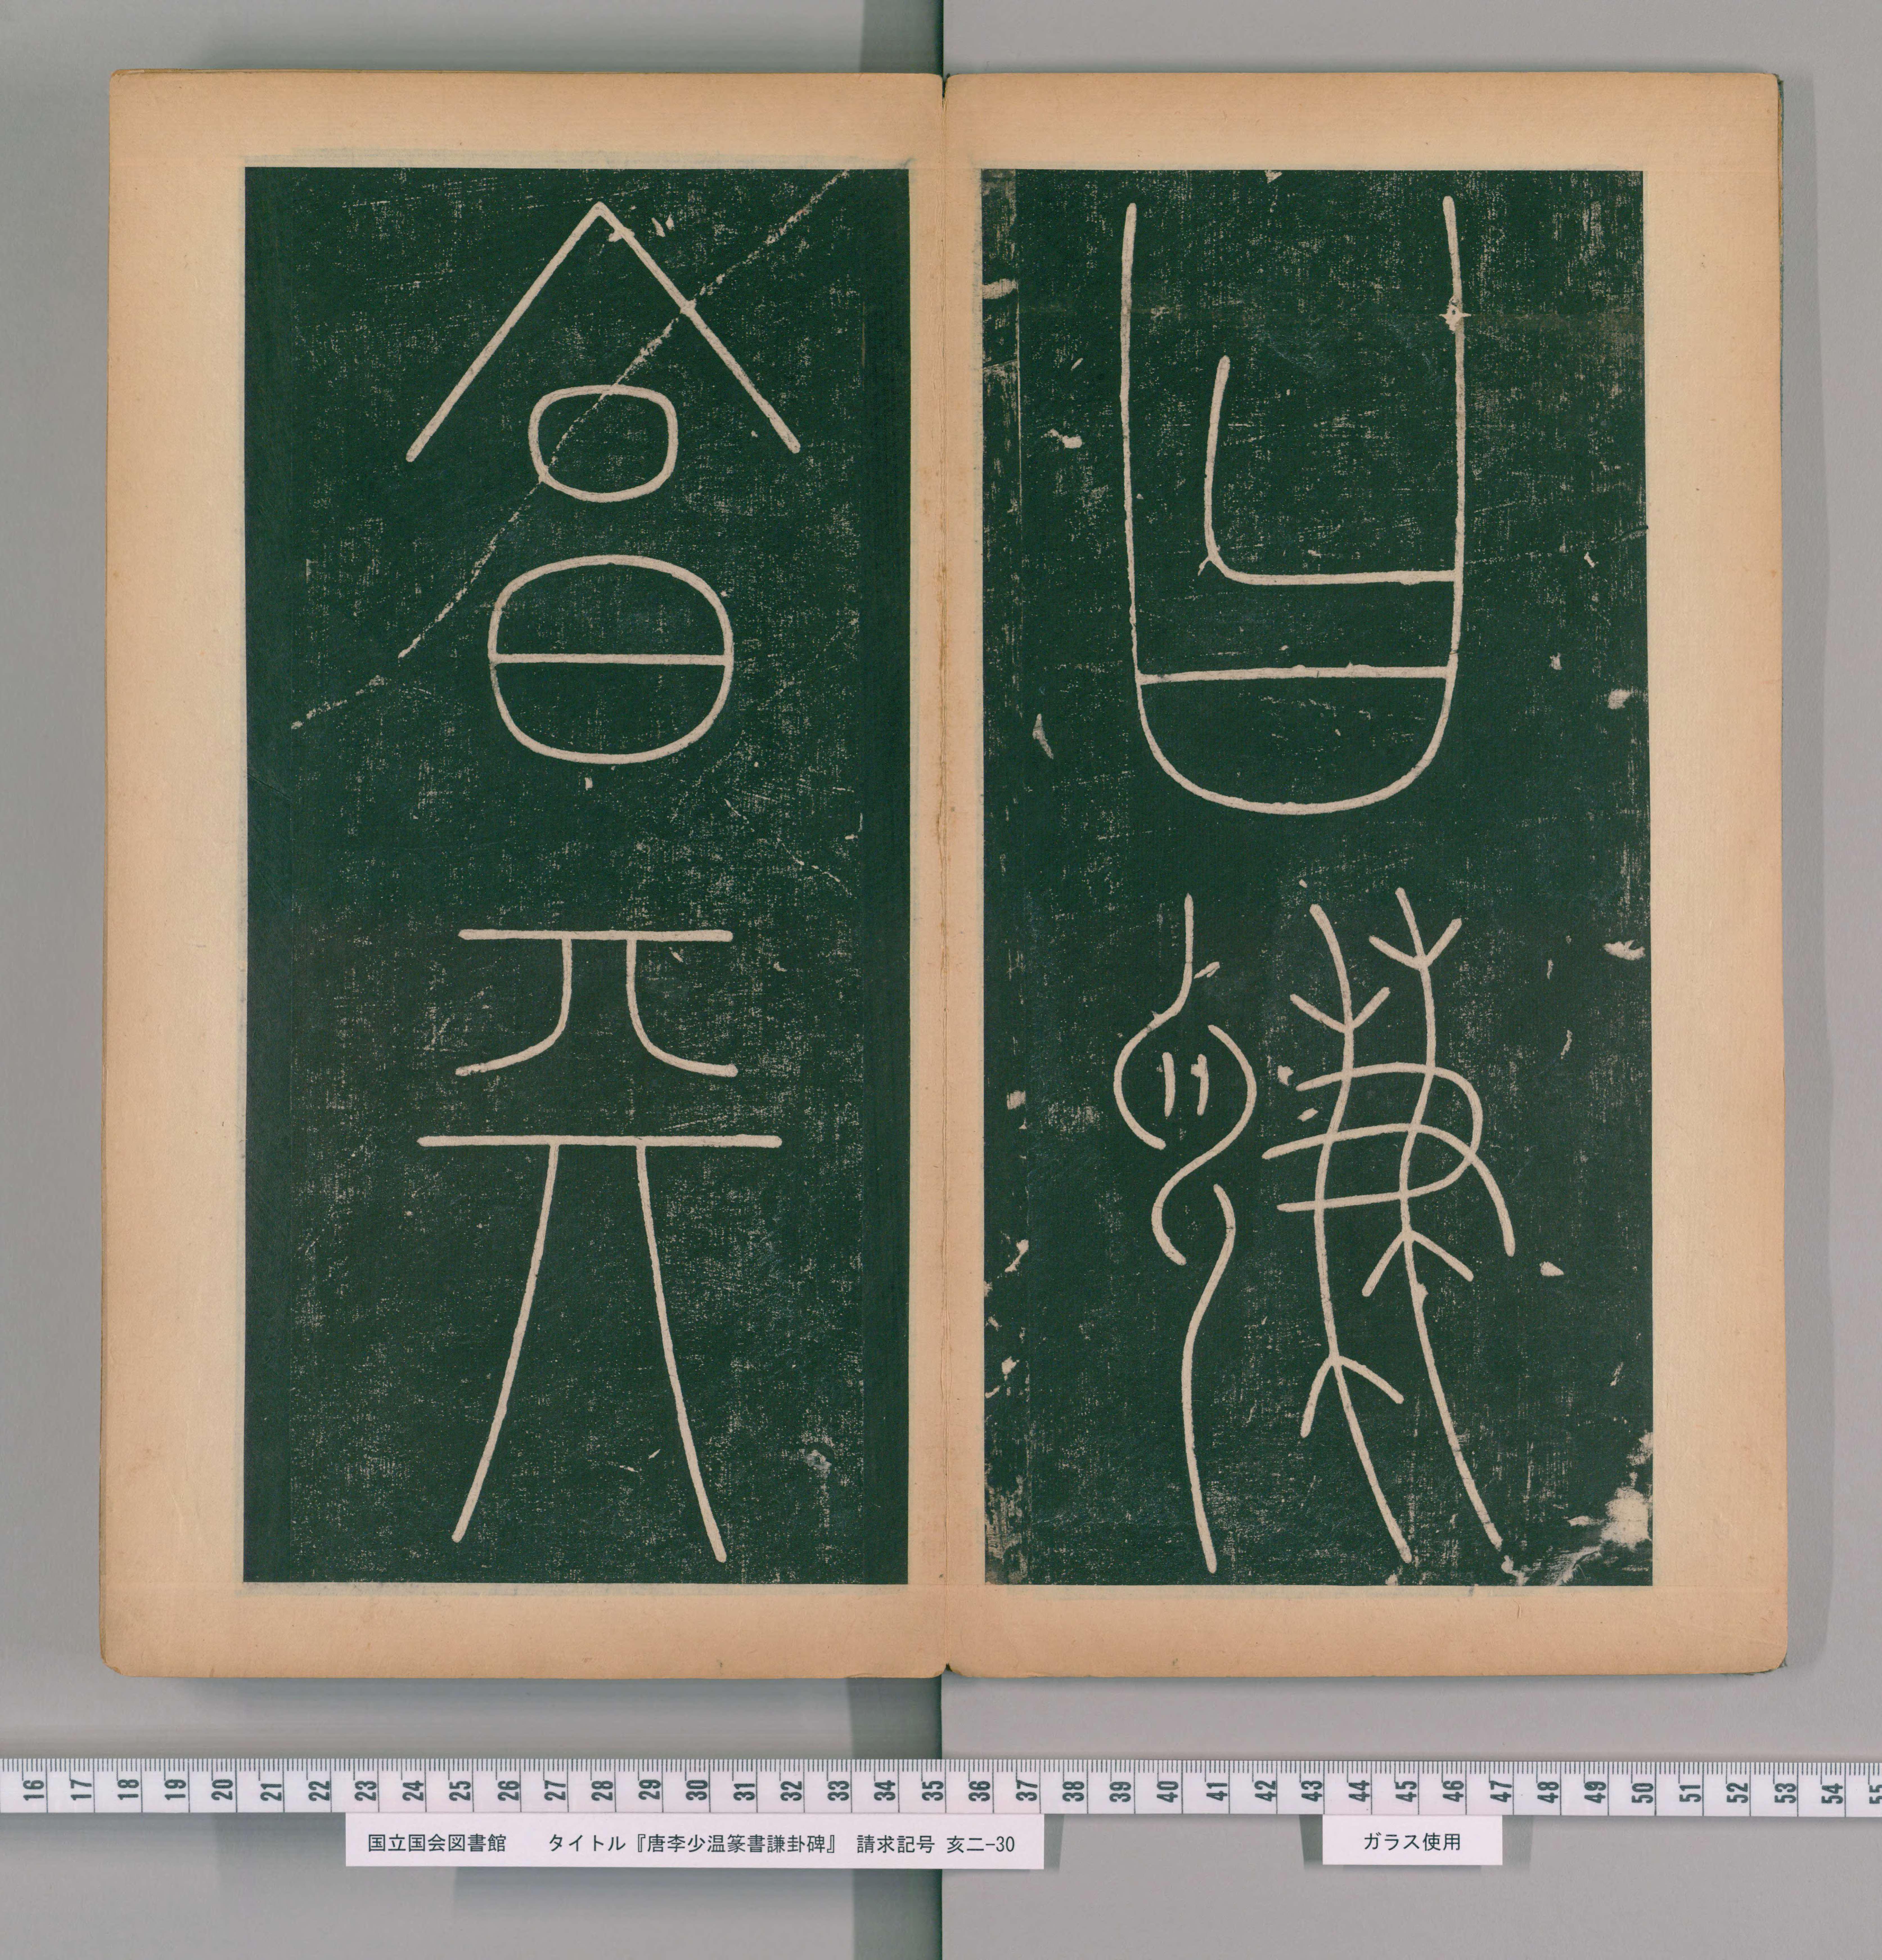 曰謙
亨天
16 17 18 19 20 21 22 23 24 25 26 27 28 29 30 31 32 33 34 35 36 37 38 39 40 41 42 43 44 45 46 47 48 49 50 51 52 53 54 55
国立国会図書館 タイトル『唐李少温篆書謙卦碑』 請求記号 亥二-30
ガラス使用